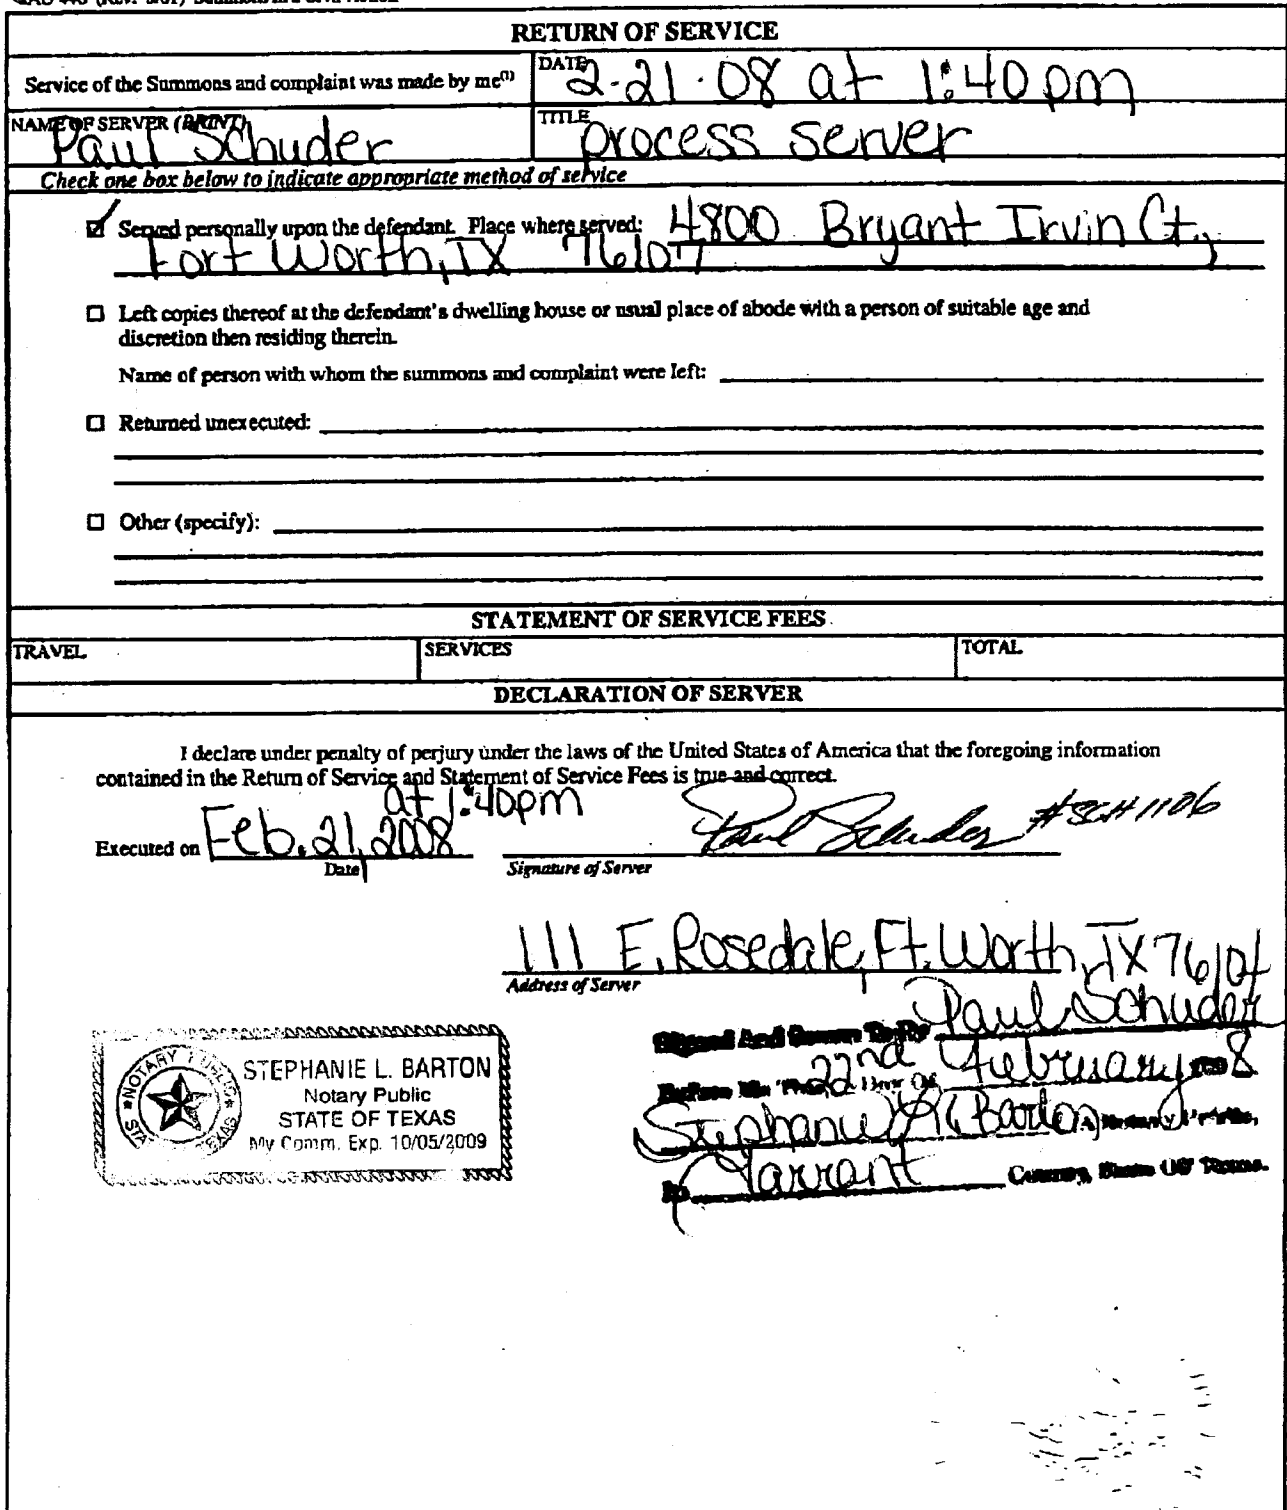 RETURN OF SERVICE
Service of the Summons and complaint was made by me(1)
DATE 2-21-08 at 1:40pm
NAME OF SERVER (PRINT) Paul Schuder
TITLE process server
Check one box below to indicate appropriate method of service
☑ Served personally upon the defendant. Place where served: 4800 Bryant Irvin Ct,
Fort Worth, TX 76107
☐ Left copies thereof at the defendant's dwelling house or usual place of abode with a person of suitable age and
discretion then residing therein.
Name of person with whom the summons and complaint were left:
☐ Returned unexecuted:
☐ Other (specify):
STATEMENT OF SERVICE FEES
TRAVEL SERVICES TOTAL
DECLARATION OF SERVER
I declare under penalty of perjury under the laws of the United States of America that the foregoing information
contained in the Return of Service and Statement of Service Fees is true and correct.
at 1:40pm
Executed on Feb. 21, 2008 Paul Schuder #SCH1106
Date Signature of Server
111 E. Rosedale, Ft. Worth, TX 76104
Address of Server
Signed And Sworn To By Paul Schuder
Before Me This 22nd Day Of February 8
Stephanie L Barton, A Notary Public,
In Tarrant County, State Of Texas.
NOTARY PUBLIC
STATE OF TEXAS
STEPHANIE L. BARTON
Notary Public
STATE OF TEXAS
My Comm. Exp. 10/05/2009